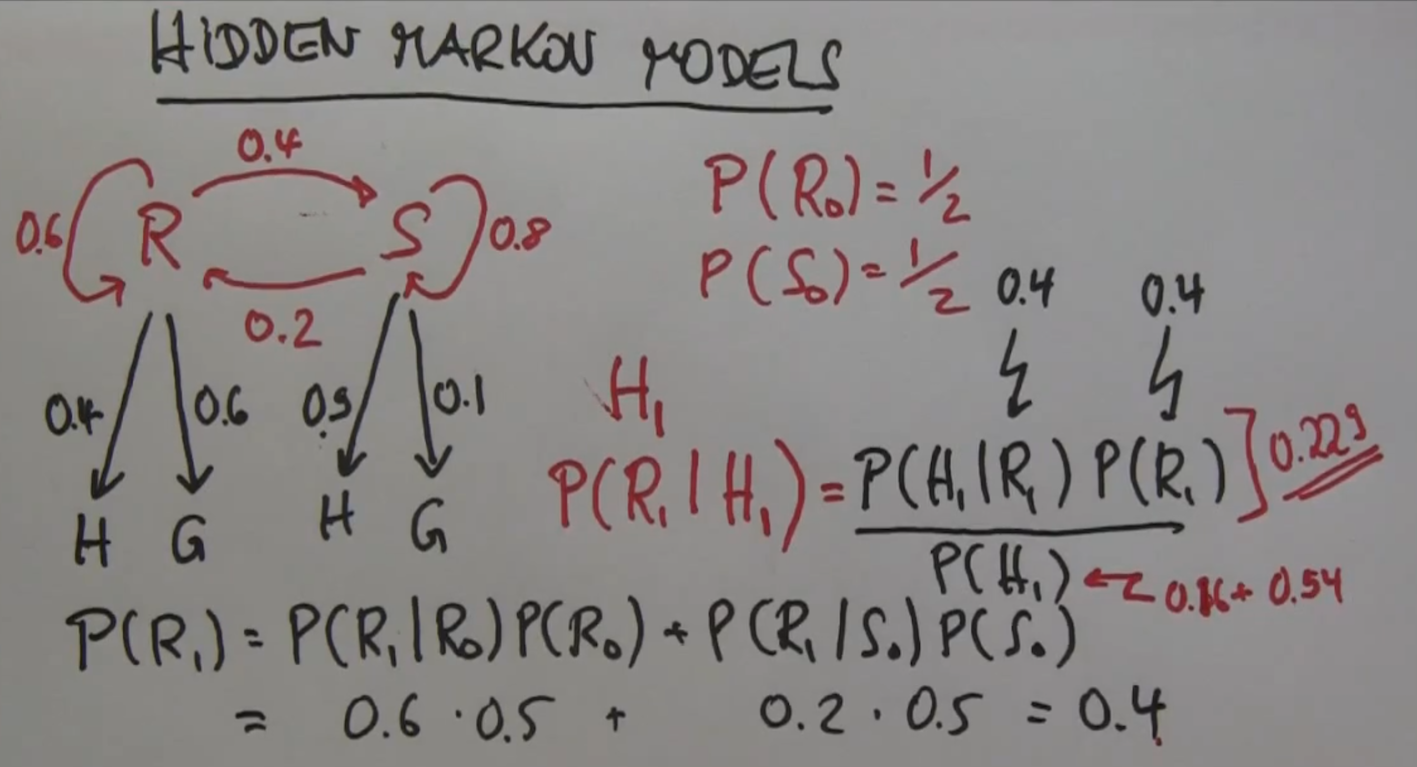 HIDDEN MARKOV MODELS
0.4
0.6 R S 0.8
0.2
0.4 0.6 0.9 0.1
H G H G
P(R₀) = 1/2
P(S₀) = 1/2
0.4 0.4
H₁
P(R₁|H₁) = P(H₁|R₁) P(R₁) ] 0.229
P(H₁) ← 0.16 + 0.54
P(R₁) = P(R₁|R₀)P(R₀) + P(R₁|S₀)P(S₀)
= 0.6 · 0.5 + 0.2 · 0.5 = 0.4